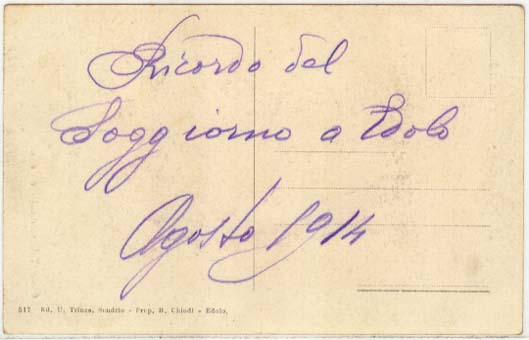 Ricordo del
Soggiorno a Edolo
Agosto 1914
517 Ed. U. Trinca, Sondrio - Prop. B. Chiodi - Edolo.